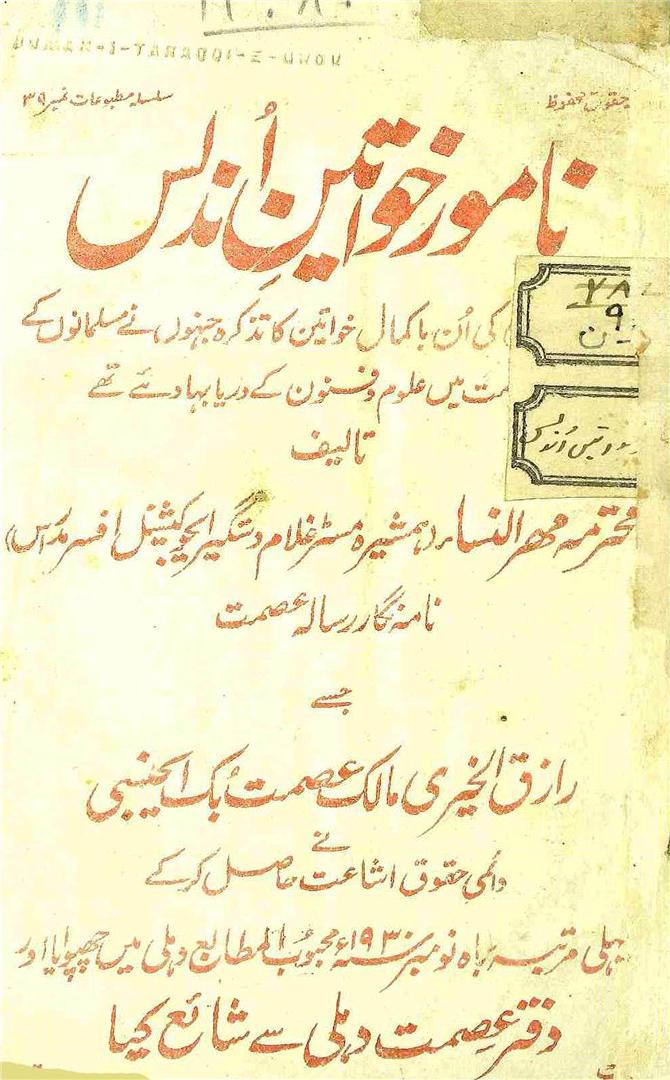 حقوق محفوظ
سلسلہ مطبوعات نمبر ۳۹
نامور خواتین اُندلس
کی اُن باکمال خواتین کا تذکرہ جنہوں نے مسلمانوں کے
میں علوم و فنون کے دریا بہا دئے تھے
تالیف
محترمہ مہر النساء (ہمشیرہ مسٹر غلام دستگیر ایجوکیشنل افسر مدراس)
نامہ نگار رسالہ عصمت
جسے
رازق الخیری مالک عصمت بُک ایجنسی
نے
دائمی حقوق اشاعت حاصل کرکے
پہلی مرتبہ بماہ نومبر سنہ ۱۹۳۰ء محبوب المطابع دہلی میں چھپوایا اور
دفتر عصمت دہلی سے شائع کیا